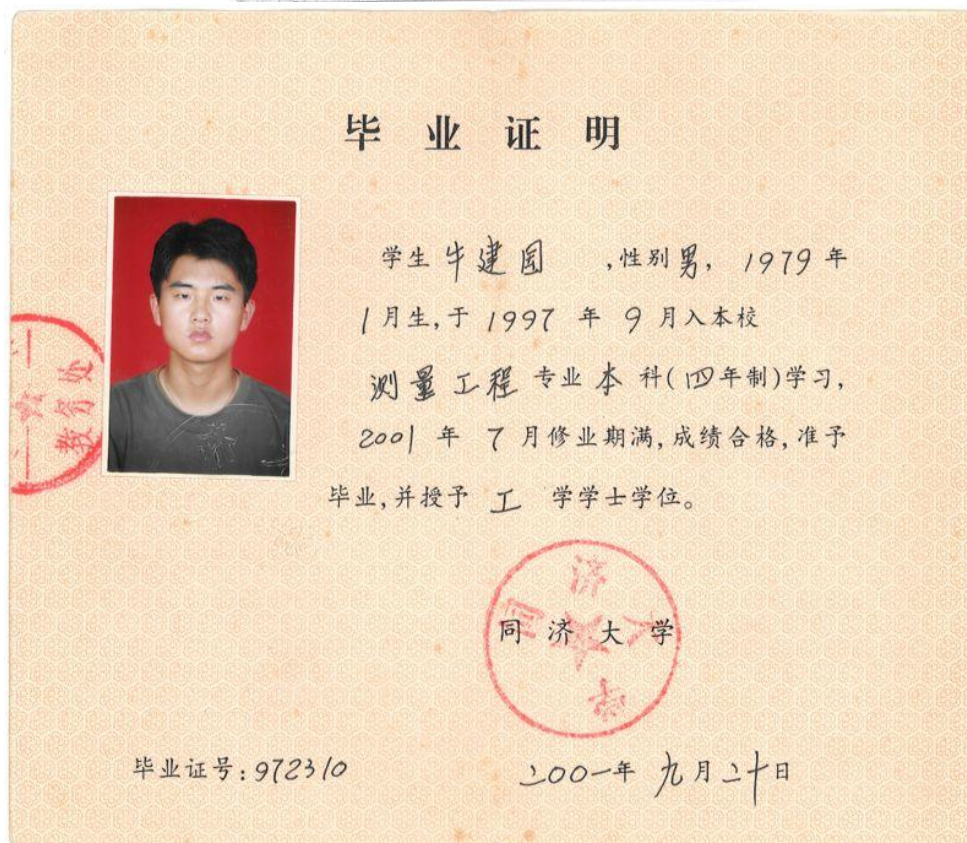 毕业证明
学生 牛建园 ,性别男, 1979 年
1月生,于 1997 年 9 月入本校
测量工程 专业 本 科(四年制)学习,
2001 年 7 月修业期满,成绩合格,准予
毕业,并授予 工 学学士学位。
教务处
同济大学
同济大学
毕业证号:972310
二00一年 九月二十日